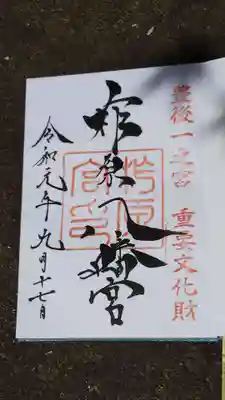 豊後一之宮 重要文化財
柞原八幡宮
令和元年九月十七日